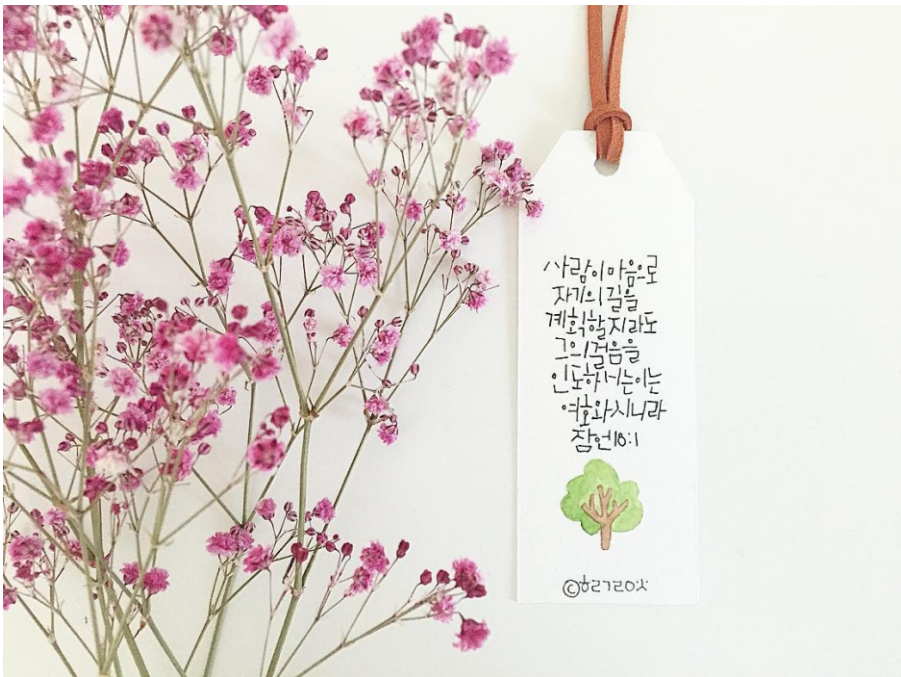 사람이 마음으로
자기의 길을
계획할지라도
그의 걸음을
인도하시는 이는
여호와시니라
잠언16:1